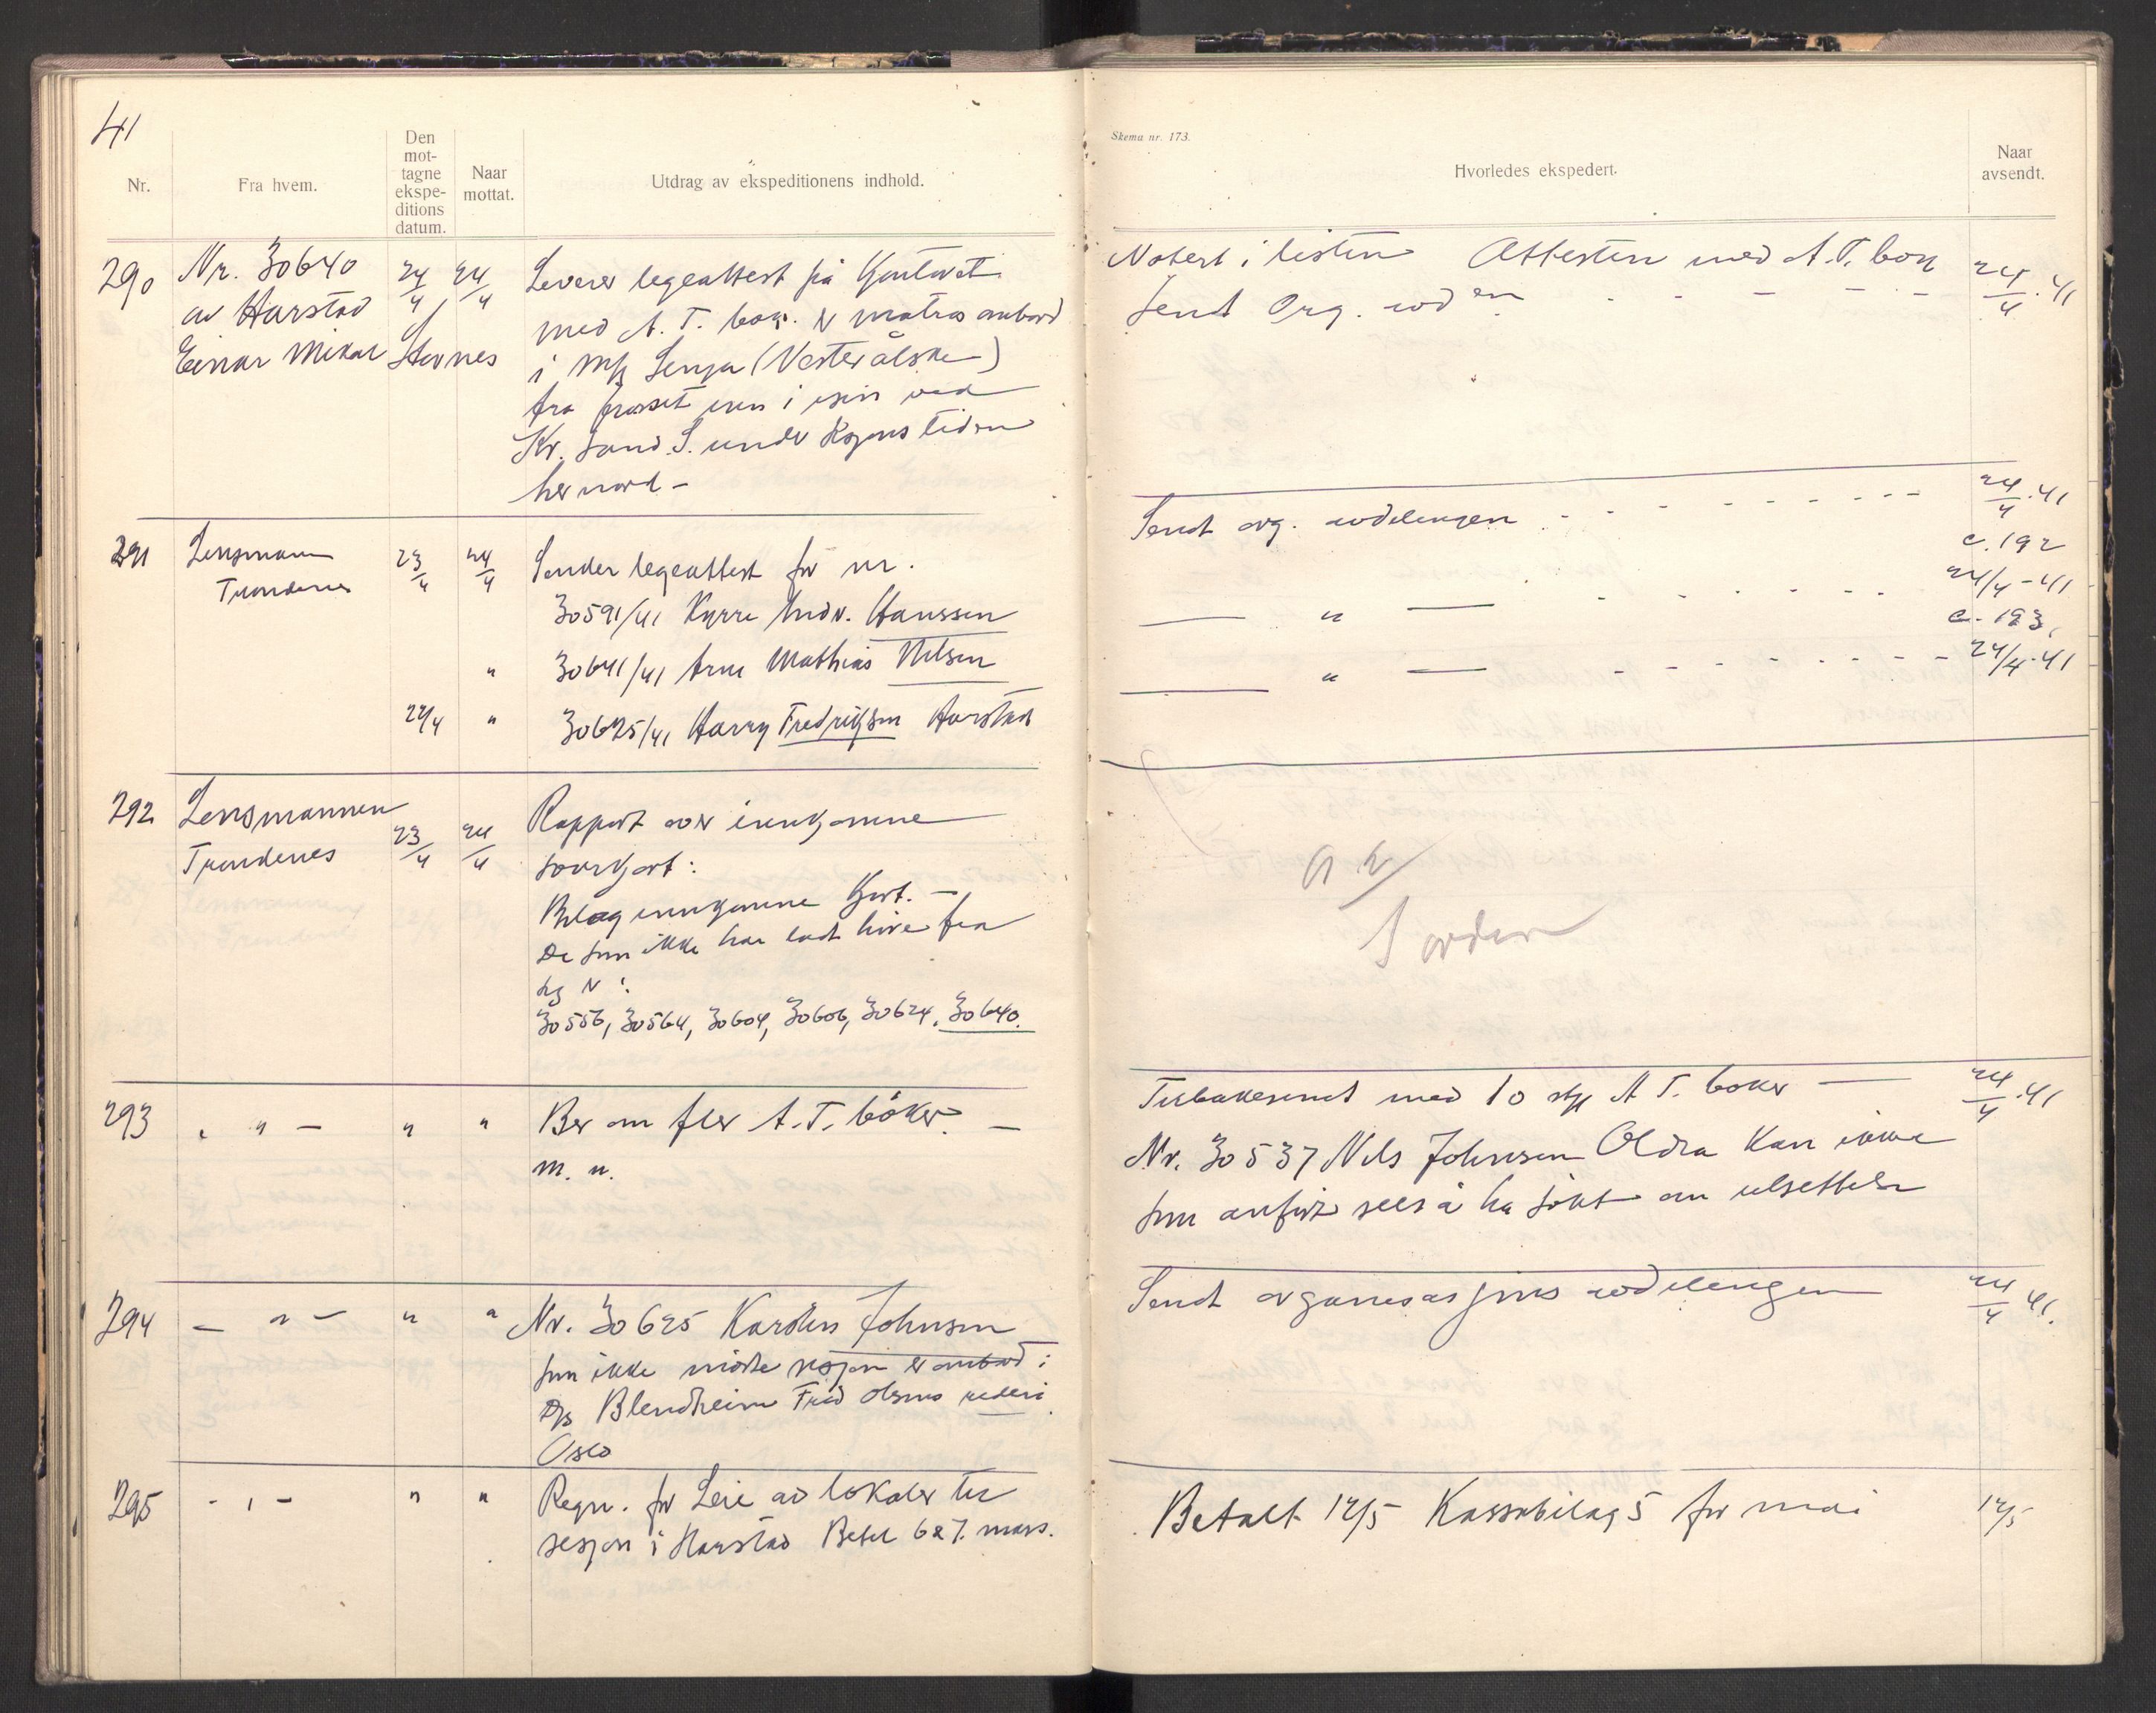 41
Nr.
Fra hvem.
Den mot-
tagne
ekspe-
ditions
datum.
Naar
mottat.
Utdrag av ekspeditionens indhold.
290 Nr. 30640 24/4 24/4 Leverer legeattest på Kontoret
av Harstad med A. T. bok. er matros ombord
Einar Mikal Stornes i M/k Senja (Vesterålske)
fra frosset inn i isen ved
Kr. sand S. under
her nord -
291 Lensmann 23/4 24/4 Sender legeattest for nr.
Trondenes
30591/41 Kyrre Hanssen
" 30641/41 Arne Mathias Nilsen
24/4 " 30625/41 Harry Fredriksen Harstad
292 Lensmannen 23/4 24/4 Rapport over innkomne
Trondenes svarkort:
Bilag innkomne Kort. -
De som ikke har latt høre fra
seg er:
30556, 30564, 30604, 30606, 30624, 30640.
293 " " - " " Ber om fler A. T. bøker. -
m. u.
294 - " - " " Nr. 30625 Karsten Johnsen
som ikke møtte sesjon er ombord i
D/s Blendheim Fred Olsens rederi
Oslo
295 - " - " " Regn. for Leie av lokaler til
sesjon i Harstad Betel 6 & 7. mars.
Skema nr. 173.
Hvorledes ekspedert.
Naar
avsendt.
Notert i listen Attesten med A. T. bok 24/4.41
Sendt Org. avd en - - - - -
Sendt org. avdelingen - - - - - - - 24/4.41
c. 192
— " — - - - - - - 24/4-41
c. 193.
— " — - - - - - - - 24/4-41
I orden
Tilbakesendt med 10 stk A T. bøker — 24/4.41
Nr. 30537 Nils Johnsen Oldra Kan ikke
som anført sees å ha søkt om utsettelse
Sendt organisasjons avdelingen 24/4 41.
Betalt 12/5 Kassabilag 5 for mai 12/5